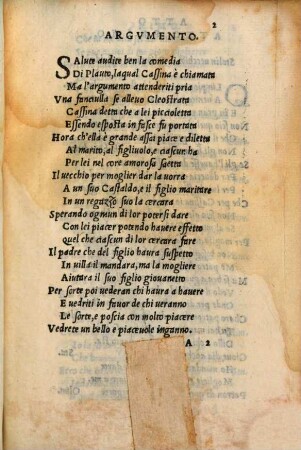 2
ARGVMENTO.
Salute audite ben la comedia
Di Plauto, laqual Cassina è chiamata
Ma l'argumento attenderiti pria
Vna fanciulla se alleuo Cleostrata
Cassina detta che a lei piccioletta
Essendo esposta in fasce fu portata
Hora ch'ella è grande assai piace e diletta
Al marito, al figliuolo, e ciascun ha
Per lei nel core amorosa saetta
Il vecchio per moglier dar la uorra
A un suo Castaldo, e il figlio maritare
In un regazzo suo la cercara
Sperando ogniun di lor potersi dare
Con lei piacer potendo hauere effetto
Quel che ciascun di lor cercara fare
Il padre che del figlio haura suspetto
In uilla il mandara, ma la mogliere
Aiutara il suo figlio giouanetto
Per sorte poi uederan chi haura a hauere
E uedriti in fauor de chi ueranno
Le sorte, e poscia con molto piacere
Vedrete un bello e piaceuole inganno.
A 2